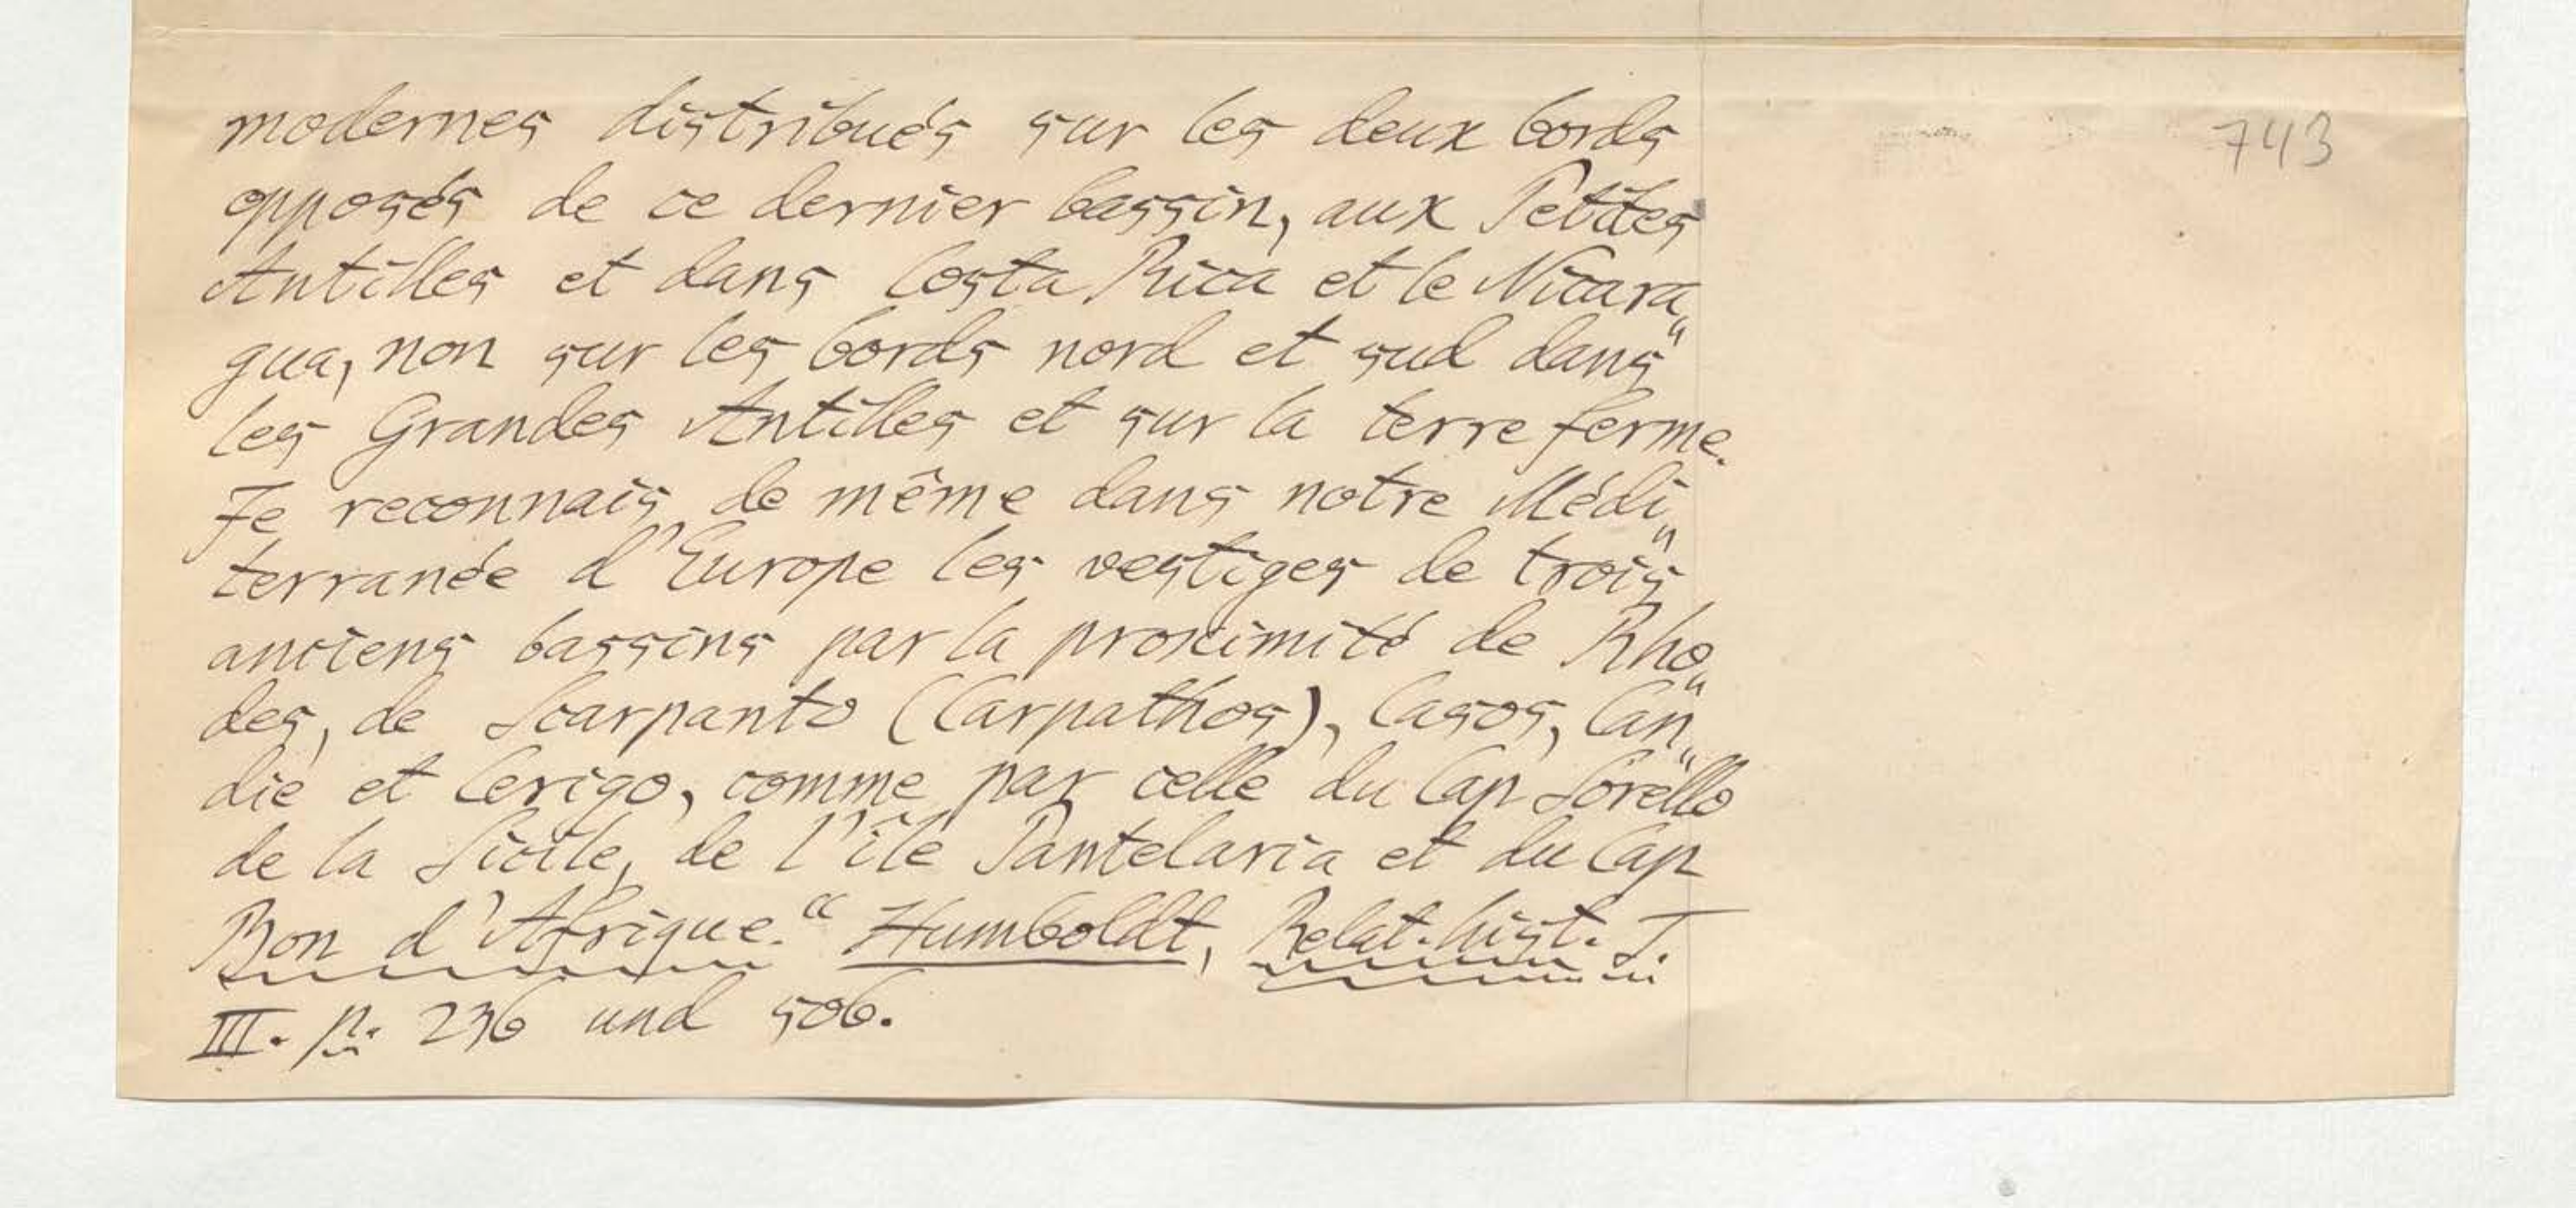 743
modernes distribués sur les deux bords
opposés de ce dernier bassin, aux Petites
Antilles et dans Costa Rica et le Nicara„
gua, non sur les bords nord et sud dans“
les Grandes Antilles et sur la terre ferme.
Je reconnais de même dans notre Médi„
terranée d'Europe les vestiges de trois“
anciens bassins par la proximité de Rho„
des, de Scarpanto (Carpathos), Casos, Can„
die et Cerigo, comme par celle du Cap Sorello
de la Sicile, de l'île Pantelaria et du Cap
Bon d'Afrique.“ Humboldt, Relat. hist. T.
III. p. 236 und 506.